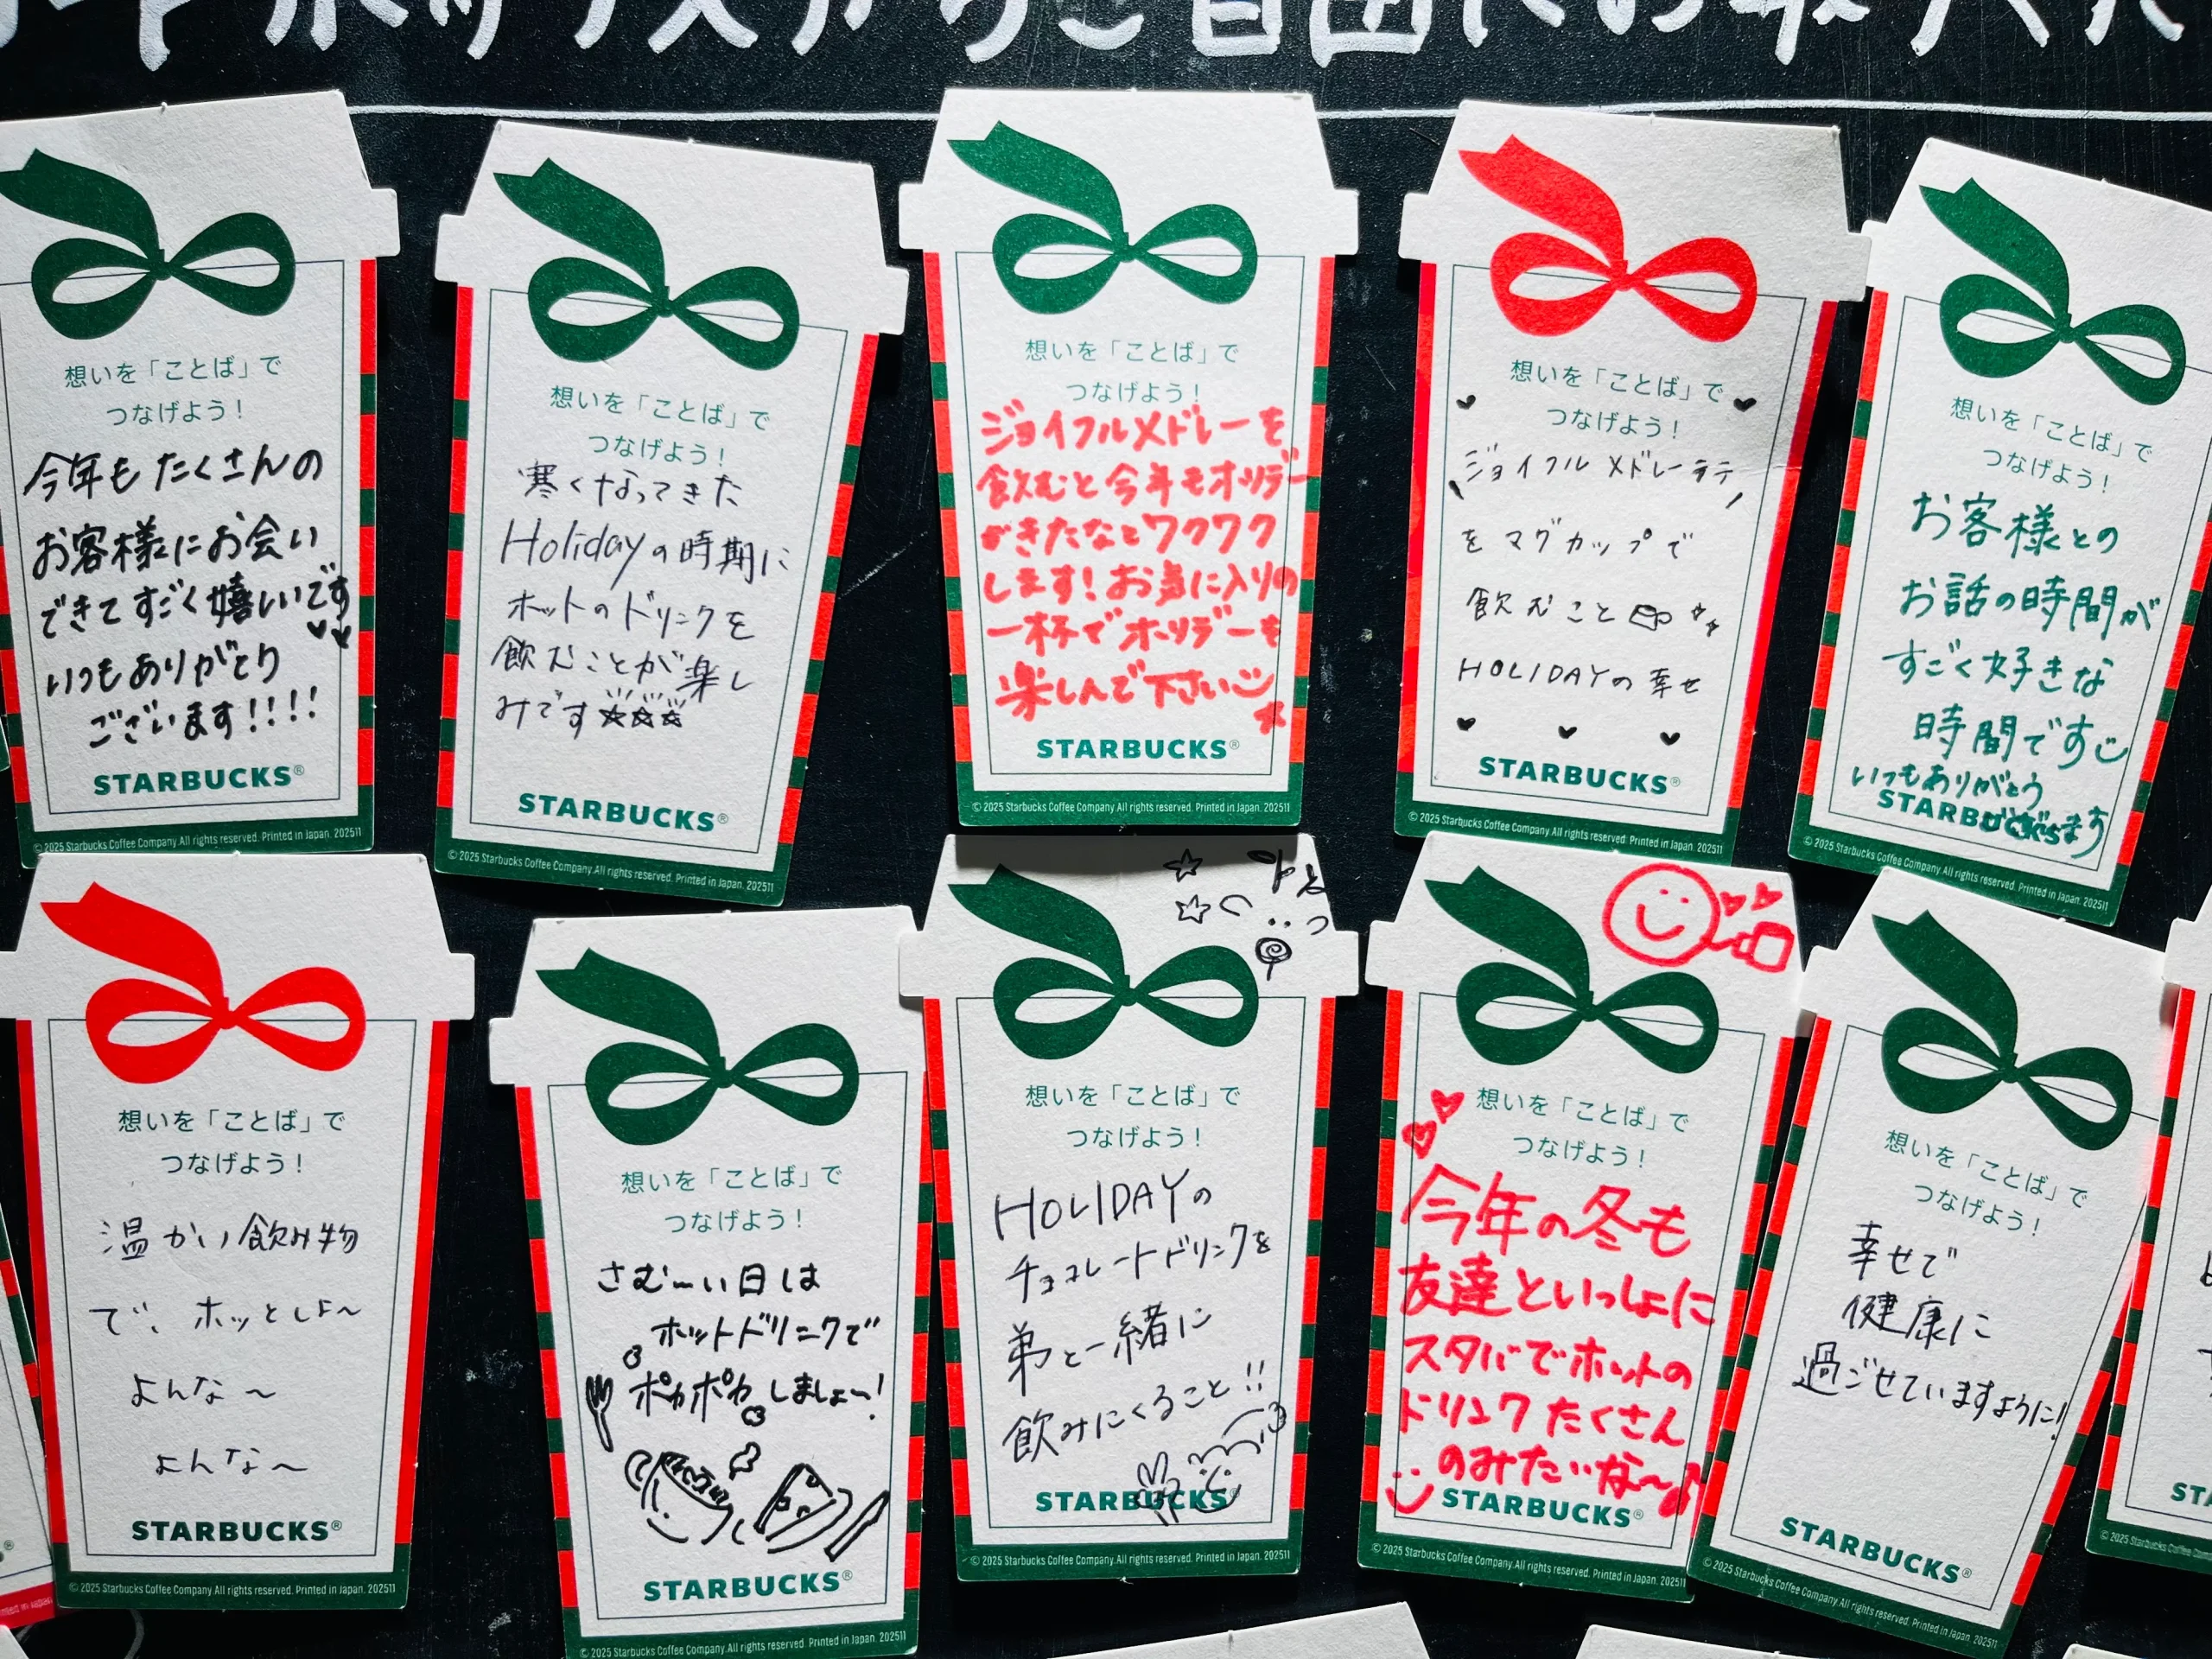 ご自由にお取りくだ
想いを「ことば」で
つなげよう！
今年もたくさんの
お客様にお会い
できてすごく嬉しいです
いつもありがとう
ございます!!!!
STARBUCKS®
© 2025 Starbucks Coffee Company. All rights reserved. Printed in Japan. 202511
想いを「ことば」で
つなげよう！
寒くなってきた
Holidayの時期に
ホットのドリンクを
飲むことが楽し
みです☆☆☆
STARBUCKS®
© 2025 Starbucks Coffee Company. All rights reserved. Printed in Japan. 202511
想いを「ことば」で
つなげよう！
ジョイフルメドレーを
飲むと今年もホリデー
がきたなとワクワク
します！お気に入りの
一杯でホリデーを
楽しんで下さい
STARBUCKS®
© 2025 Starbucks Coffee Company. All rights reserved. Printed in Japan. 202511
想いを「ことば」で
つなげよう！
ジョイフルメドレーラテ
をマグカップで
飲むこと
HOLIDAYの幸せ
STARBUCKS®
© 2025 Starbucks Coffee Company. All rights reserved. Printed in Japan. 202511
想いを「ことば」で
つなげよう！
お客様との
お話の時間が
すごく好きな
時間です
いつもありがとう
ございます
STARBUCKS
© 2025 Starbucks Coffee Company. All rights reserved. Printed in Japan. 202511
想いを「ことば」で
つなげよう！
温かい飲み物
で、ホッとしよ〜
よんな〜
よんな〜
STARBUCKS®
© 2025 Starbucks Coffee Company. All rights reserved. Printed in Japan. 202511
想いを「ことば」で
つなげよう！
さむ〜い日は
ホットドリンクで
ポカポカしましょ〜！
STARBUCKS®
© 2025 Starbucks Coffee Company. All rights reserved. Printed in Japan. 202511
想いを「ことば」で
つなげよう！
HOLIDAYの
チョコレートドリンクを
弟と一緒に
飲みにくること!!
STARBUCKS®
© 2025 Starbucks Coffee Company. All rights reserved. Printed in Japan. 202511
想いを「ことば」で
つなげよう！
今年の冬も
友達といっしょに
スタバでホットの
ドリンクたくさん
のみたいな〜♪
STARBUCKS®
© 2025 Starbucks Coffee Company. All rights reserved. Printed in Japan. 202511
想いを「ことば」で
つなげよう！
幸せで
健康に
過ごせていますように！
STARBUCKS®
© 2025 Starbucks Coffee Company. All rights reserved. Printed in Japan. 202511